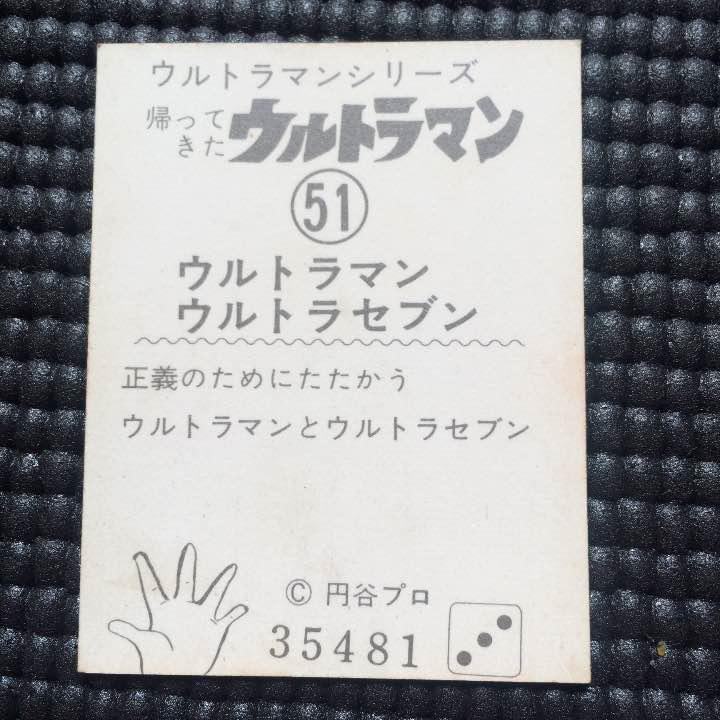 ウルトラマンシリーズ
帰ってきたウルトラマン
51
ウルトラマン
ウルトラセブン
正義のためにたたかう
ウルトラマンとウルトラセブン
© 円谷プロ
35481